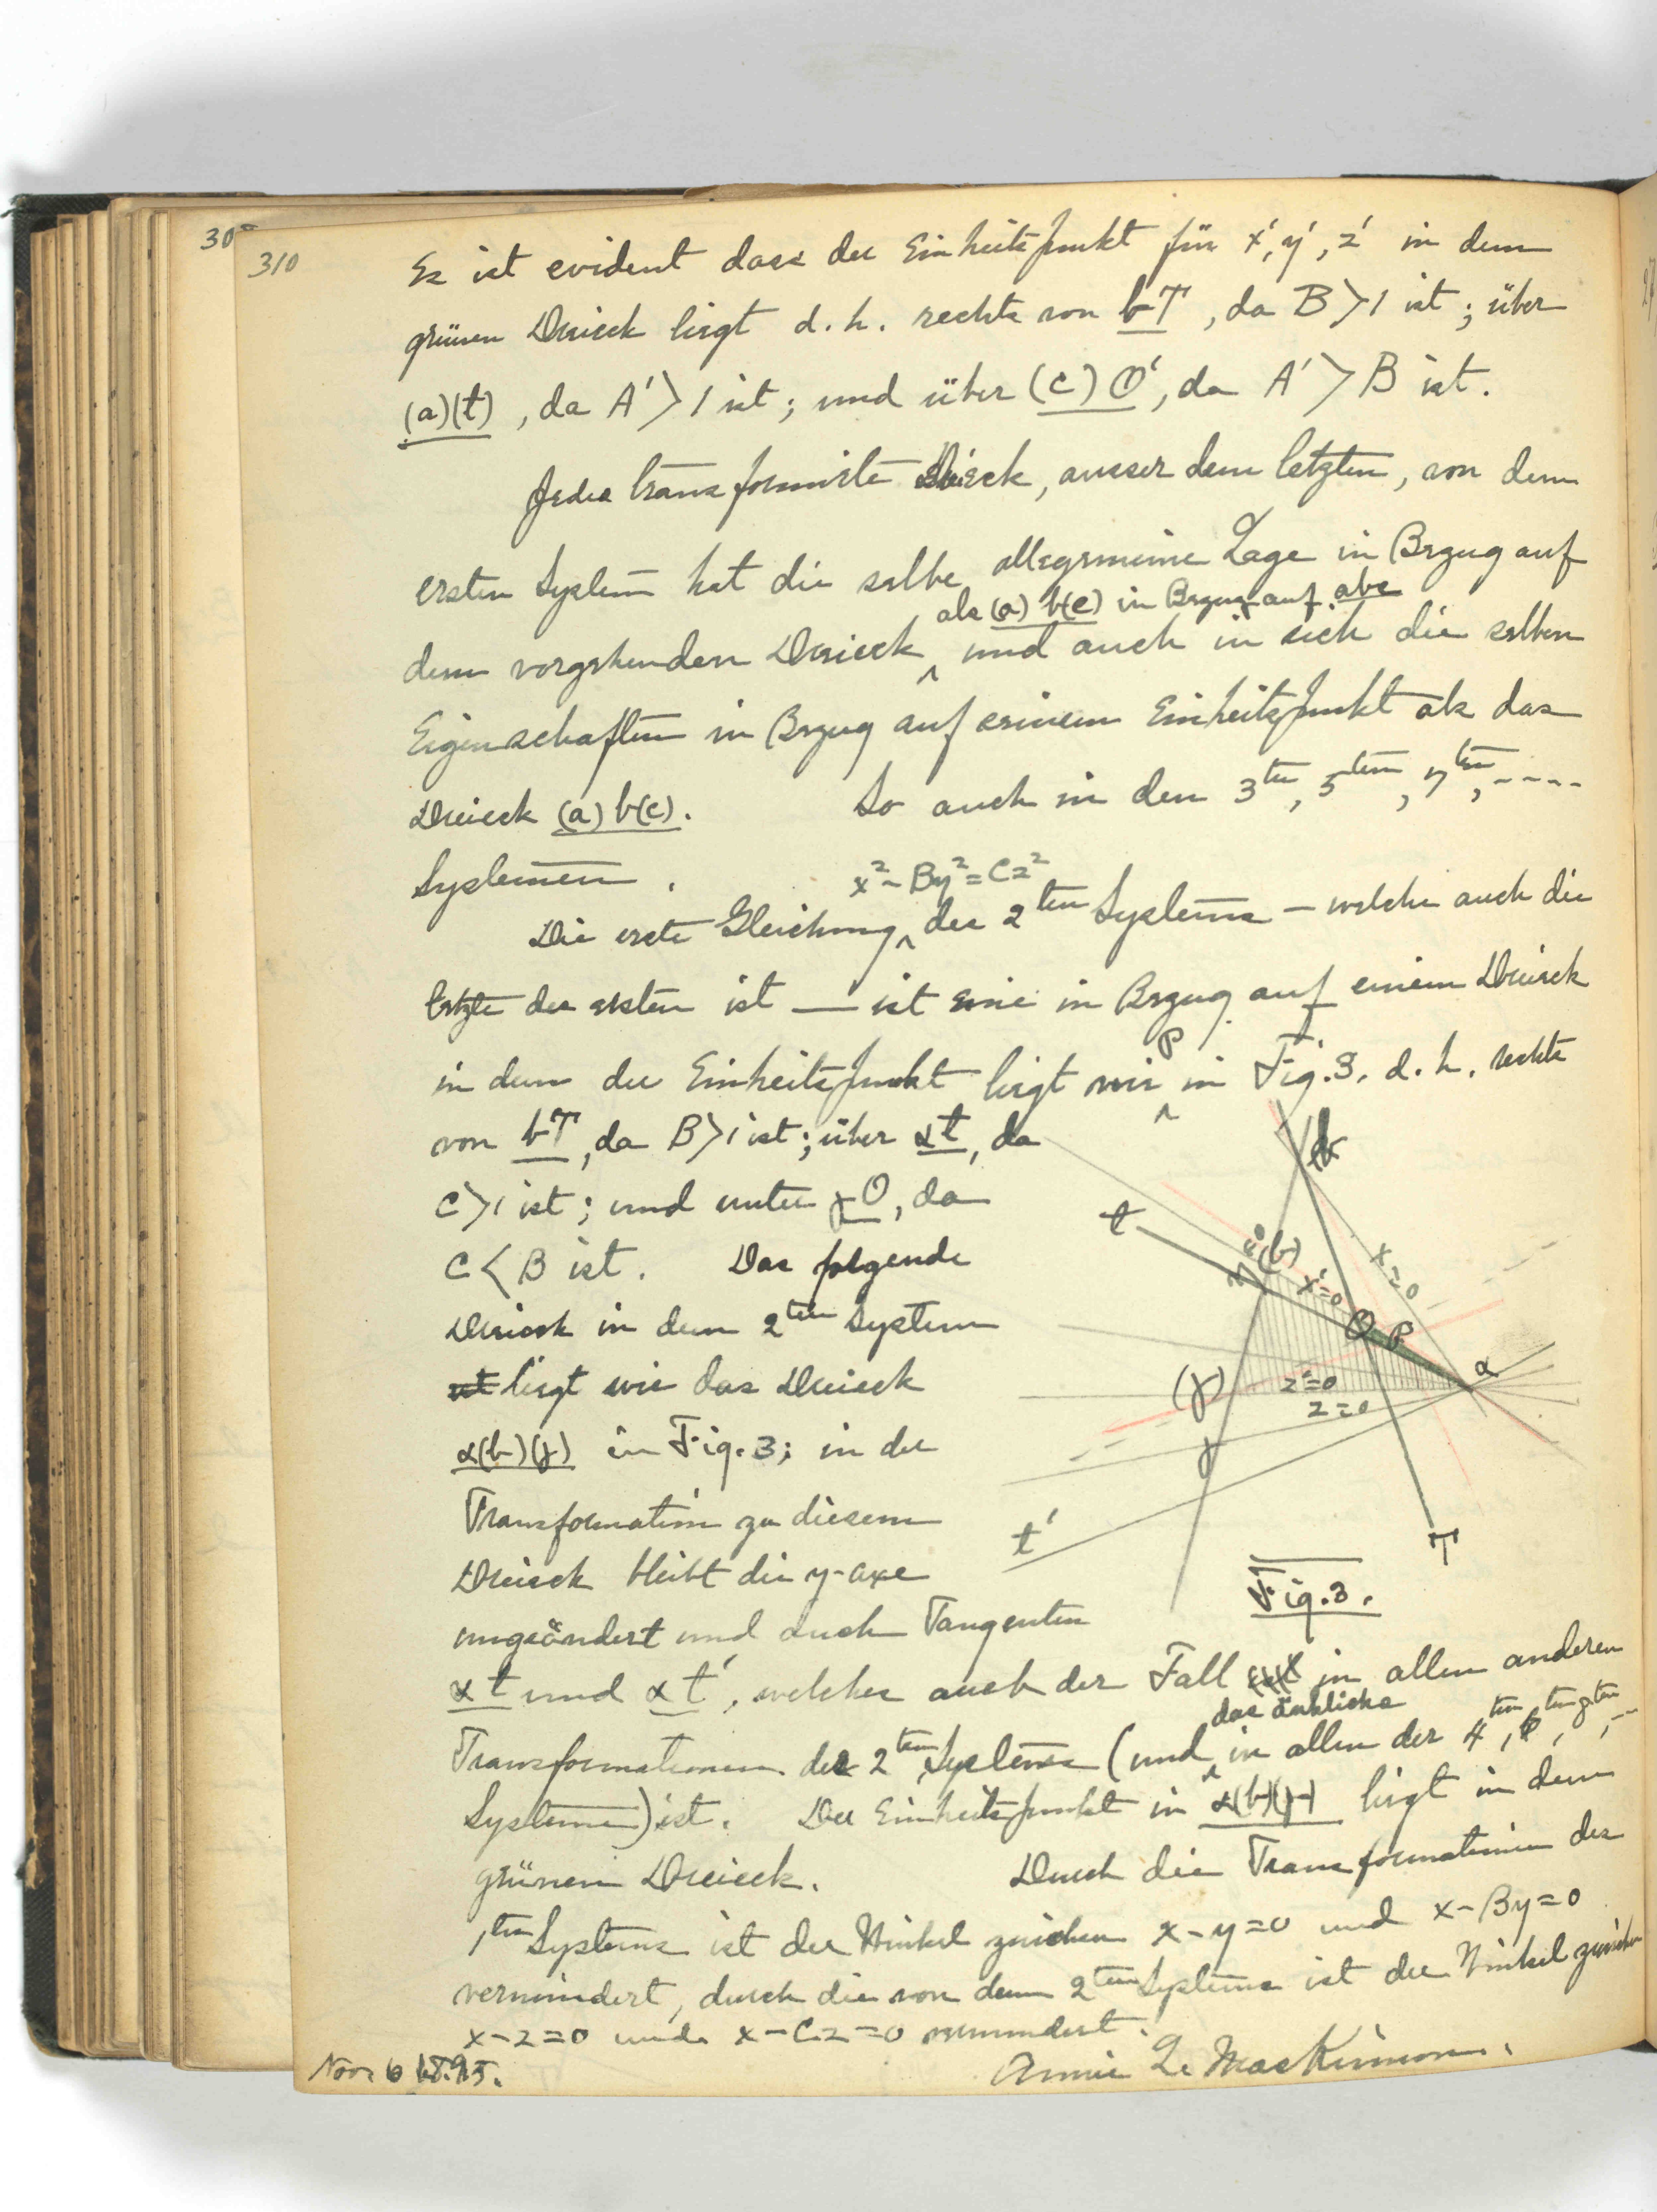 308
310
Es ist evident dass der Einheitspunkt für x', y', z' in dem
grünen Dreieck liegt d. h. rechts von bT, da B>1 ist; über
(a)(t), da A'>1 ist; und über (c)O', da A'>B ist.
Jedes transformirte Dreieck, ausser dem letzten, von dem
ersten System hat die selbe allegemeine Lage in Bezug auf
als (a) b(c) in Bezug auf abc
dem vorgehenden Dreieck ^ und auch in sich die selben
Eigenschaften in Bezug auf seinem Einheitspunkt als das
Dreieck (a) b(c). So auch in den 3ten, 5ten, 7ten, ----
Systemen.
x²-By²=Cz²
Die erste Gleichung ^ des 2ten Systems — welche auch die
letzte des ersten ist — ist eine in Bezug auf einem Dreieck
in dem der Einheitspunkt liegt wie ^P in Fig. 3, d. h. rechts
von bT, da B>1 ist; über αt, da
C>1 ist; und unter γO, da
C<B ist. Das folgende
Dreieck in dem 2ten System
liegt wie das Dreieck
α(b)(γ) in Fig. 3; in der
Transformation zu diesem
Dreieck bleibt die y-axe
ungeändert und auch Tangenten
αt und αt', welches auch der Fall in allen anderen
das änhliche
Transformationen des 2ten Systems (und ^ in allen der 4ten, 6ten, 8ten, --
Systeme) ist. Der Einheitspunkt in α(b)(γ) liegt in dem
grünen Dreieck. Durch die Transformationen des
1ten Systems ist der Winkel zwischen x-y=0 und x-By=0
vermindert, durch die von dem 2ten Systems ist der Winkel zwischen
x-z=0 und x-Cz=0 vermindert.
Nov. 6 1895.
Annie L. MacKinnon.
b
t
(b)
x=0
x'=0
O
P
α
(γ)
z'=0
z=0
γ
t'
T
Fig. 3.